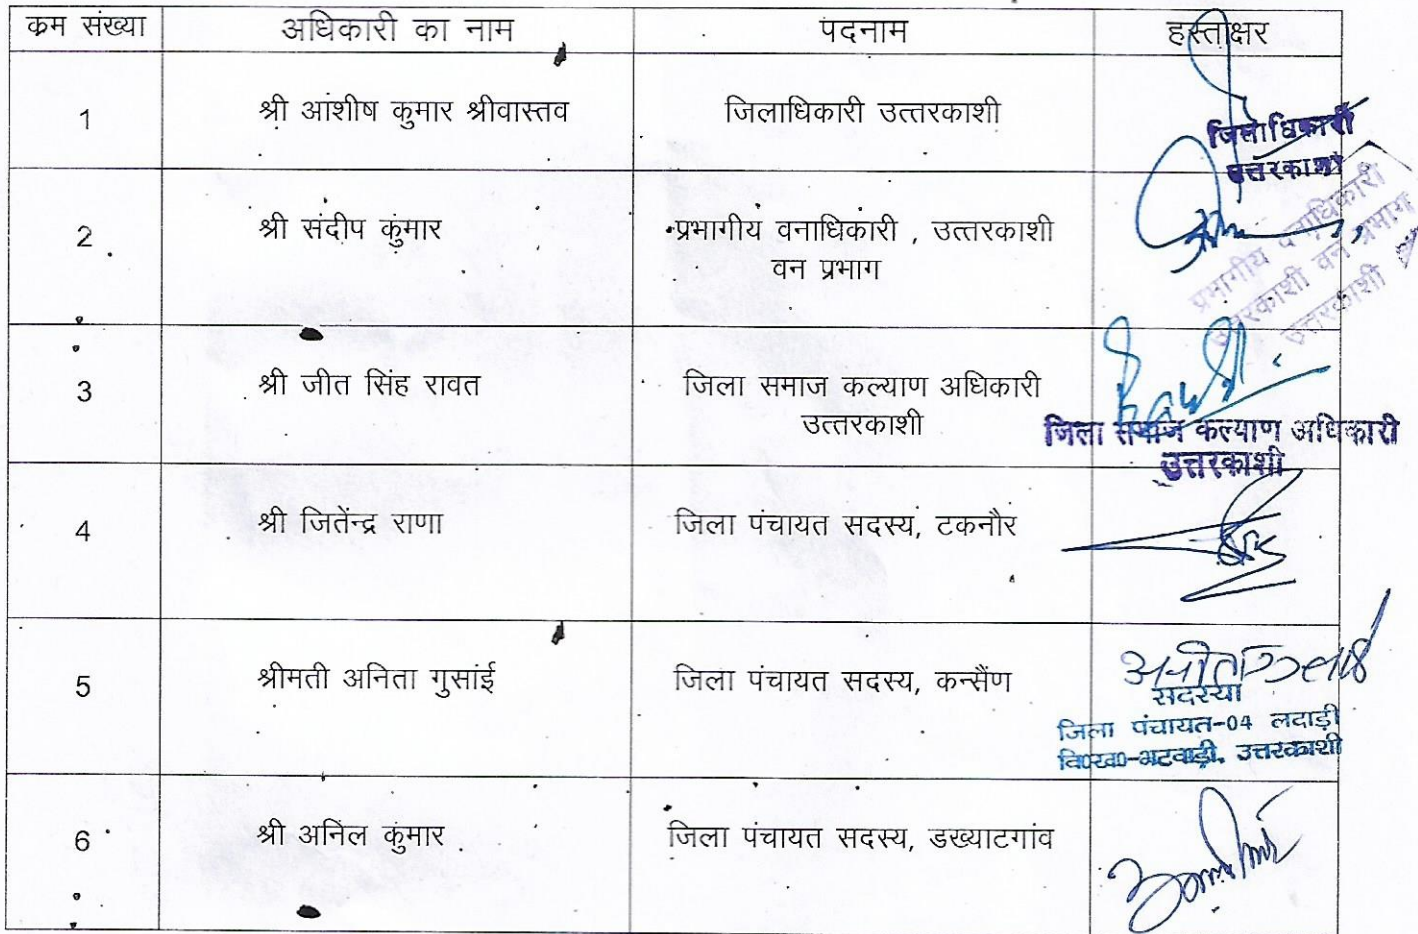 क्रम संख्या अधिकारी का नाम पदनाम हस्ताक्षर
1 श्री आशीष कुमार श्रीवास्तव जिलाधिकारी उत्तरकाशी
जिलाधिकारी
उत्तरकाशी
2 श्री संदीप कुमार प्रभागीय वनाधिकारी , उत्तरकाशी
वन प्रभाग
प्रभागीय वनाधिकारी
उत्तरकाशी वन प्रभाग
उत्तरकाशी
3 श्री जीत सिंह रावत जिला समाज कल्याण अधिकारी
उत्तरकाशी
जिला समाज कल्याण अधिकारी
उत्तरकाशी
4 श्री जितेन्द्र राणा जिला पंचायत सदस्य, टकनौर
5 श्रीमती अनिता गुसांई जिला पंचायत सदस्य, कन्सैंण
सदस्या
जिला पंचायत-04 लदाड़ी
वि0ख0-भटवाड़ी, उत्तरकाशी
6 श्री अनिल कुमार जिला पंचायत सदस्य, डख्याटगांव